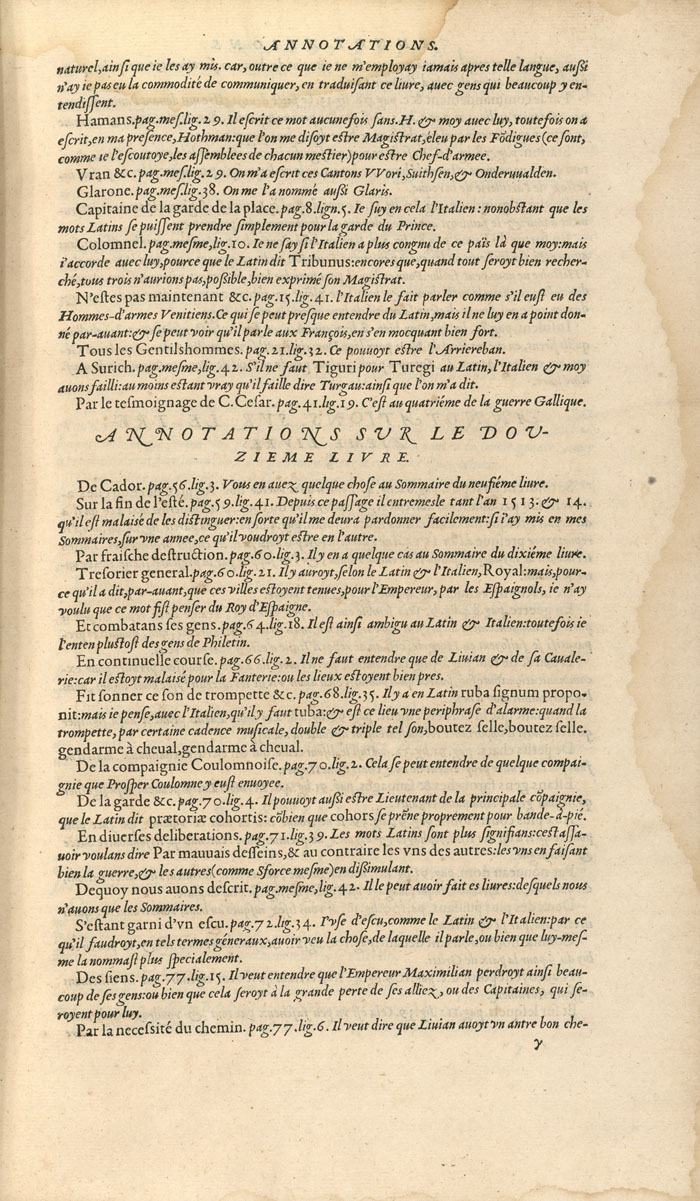 ANNOTATIONS.
naturel, ainsi que ie les ay mis. car, outre ce que ie ne m'employay iamais apres telle langue, aussi
n'ay ie pas eu la commodité de communiquer, en traduisant ce liure, auec gens qui beaucoup y en-
tendissent.
Hamans. pag. mes. lig. 29. Il escrit ce mot aucunefois sans. H. & moy auec luy, toutefois on a
escrit, en ma presence, Hothman: que l'on me disoyt estre Magistrat, éleu par les Födigues (ce sont,
comme ie l'escoutoye, les assemblees de chacun mestier) pour estre Chef-d'armee.
Vran &c. pag. mes. lig. 29. On m'a escrit ces Cantons VVori, Suithsen, & Onderuualden.
Glarone. pag. mes. lig. 38. On me l'a nommé aussi Glaris.
Capitaine de la garde de la place. pag. 8. lign. 5. Ie suy en cela l'Italien: nonobstant que les
mots Latins se puissent prendre simplement pour la garde du Prince.
Colomnel. pag. mesme, lig. 10. Ie ne say si l'Italien a plus congnu de ce païs là que moy: mais
i'accorde auec luy, pource que le Latin dit Tribunus: encores que, quand tout seroyt bien recher-
ché, tous trois n'aurions pas, possible, bien exprimé son Magistrat.
N'estes pas maintenant &c. pag. 15. lig. 41. l'Italien le fait parler comme s'il eust eu des
Hommes-d'armes Venitiens. Ce qui se peut presque entendre du Latin, mais il ne luy en a point don-
né par-auant: & se peut voir qu'il parle aux François, en s'en mocquant bien fort.
Tous les Gentilshommes. pag. 21. lig. 32. Ce pouuoyt estre l'Arriereban.
A Surich. pag. mesme, lig. 42. S'il ne faut Tiguri pour Turegi au Latin, l'Italien & moy
auons failli: au moins estant vray qu'il faille dire Turgau: ainsi que l'on m'a dit.
Par le tesmoignage de C. Cesar. pag. 41. lig. 19. C'est au quatriéme de la guerre Gallique.
ANNOTATIONS SVR LE DOV-
ZIEME LIVRE.
De Cador. pag. 56. lig. 3. Vous en auez quelque chose au Sommaire du neufiéme liure.
Sur la fin de l'esté. pag. 59. lig. 41. Depuis ce passage il entremesle tant l'an 1513. & 14.
qu'il est malaisé de les distinguer: en sorte qu'il me deura pardonner facilement: si i'ay mis en mes
Sommaires, sur vne annee, ce qu'il voudroyt estre en l'autre.
Par fraische destruction. pag. 60. lig. 3. Il y en a quelque cas au Sommaire du dixiéme liure.
Tresorier general. pag. 60. lig. 21. Il y auroyt, selon le Latin & l'Italien, Royal: mais, pour-
ce qu'il a dit, par-auant, que ces villes estoyent tenues, pour l'Empereur, par les Espaignols, ie n'ay
voulu que ce mot fist penser du Roy d'Espaigne.
Et combatans ses gens. pag. 64. lig. 18. Il est ainsi ambigu au Latin & Italien: toutefois ie
l'enten plustost des gens de Philetin.
En continuelle course. pag. 66. lig. 2. Il ne faut entendre que de Liuian & de sa Caualе-
rie: car il estoyt malaisé pour la Fanterie: ou les lieux estoyent bien pres.
Fit sonner ce son de trompette &c. pag. 68. lig. 35. Il y a en Latin tuba signum propo-
nit: mais ie pense, auec l'Italien, qu'il y faut tuba: & est ce lieu vne periphrase d'alarme: quand la
trompette, par certaine cadence musicale, double & triple tel son, boutez selle, boutez selle.
gendarme à cheual, gendarme à cheual.
De la compaignie Coulomnoise. pag. 70. lig. 2. Cela se peut entendre de quelque compai-
gnie que Prosper Coulomne y eust enuoyee.
De la garde &c. pag. 70. lig. 4. Il pouuoyt aussi estre Lieutenant de la principale cōpaignie,
que le Latin dit prætoriæ cohortis: cōbien que cohors se prēne proprement pour bande-à-pié.
En diuerses deliberations. pag. 71. lig. 39. Les mots Latins sont plus signifians: cest assa-
uoir voulans dire Par mauuais desseins, & au contraire les vns des autres: les vns en faisant
bien la guerre, & les autres (comme Sforce mesme) en dissimulant.
Dequoy nous auons descrit. pag. mesme, lig. 42. Il le peut auoir fait es liures: desquels nous
n'auons que les Sommaires.
S'estant garni d'vn escu. pag. 72. lig. 34. I'vse d'escu, comme le Latin & l'Italien: par ce
qu'il faudroyt, en tels termes géneraux, auoir veu la chose, de laquelle il parle, ou bien que luy-mes-
me la nommast plus specialement.
Des siens. pag. 77. lig. 15. Il veut entendre que l'Empereur Maximilian perdroyt ainsi beau-
coup de ses gens: ou bien que cela seroyt à la grande perte de ses alliez, ou des Capitaines, qui se-
royent pour luy.
Par la necessité du chemin. pag. 77. lig. 6. Il veut dire que Liuian auoyt vn antre bon che-
y